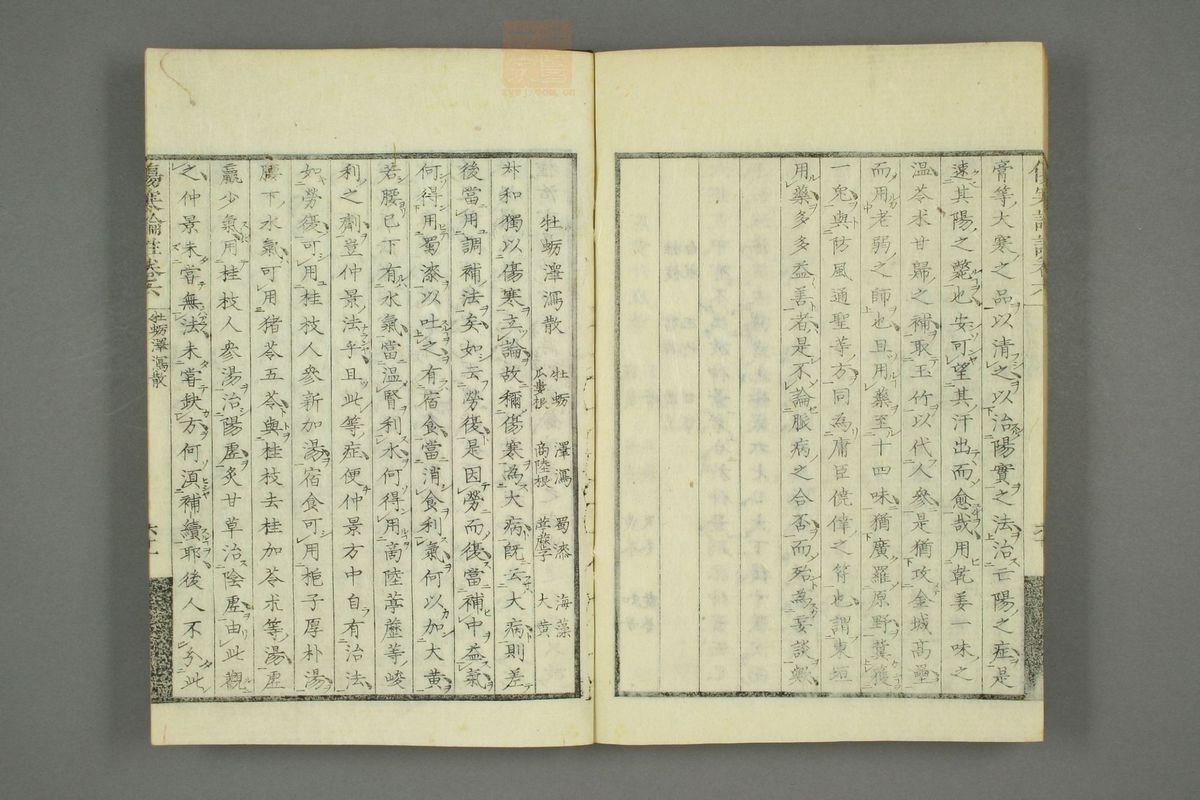 膏等大寒之品以清之以治陽實之法治亡陽之症是
速其陽之斃也安可望其汗出而愈哉用乾姜一味之
溫苓朮甘歸之補取玉竹以代人參是猶攻金城高壘
而用老弱之師也且用藥至十四味猶廣羅原野冀獲
一兔與防風通聖等方同為庸臣僥倖之符也謂東垣
用藥多多益善者是不論脈病之合否而殆為妄談歟
牡蠣澤瀉散
牡蠣 澤瀉 蜀漆 海藻
瓜蔞根 商陸根 葶藶子 大黃
和獨以傷寒立論故稱傷寒為大病既云大病則差
後當用調補法矣如云勞復是因勞而復當補中益氣
何得用蜀漆以吐之有宿食當消食利氣何以加大黃
若腰已下有水氣當溫腎利水何得用商陸葶藶等峻
利之劑豈仲景法乎且此等症便仲景方中自有治法
如勞復可用桂枝人參新加湯宿食可用梔子厚朴湯
腰下水氣可用猪苓五苓與桂枝去桂加苓朮等湯虛
羸少氣用桂枝人參湯治陽虛炙甘草治陰虛由此觀
之仲景未嘗無法未嘗缺方何須補續耶後人不分此
傷寒論註卷六 牡蠣澤瀉散 六十一